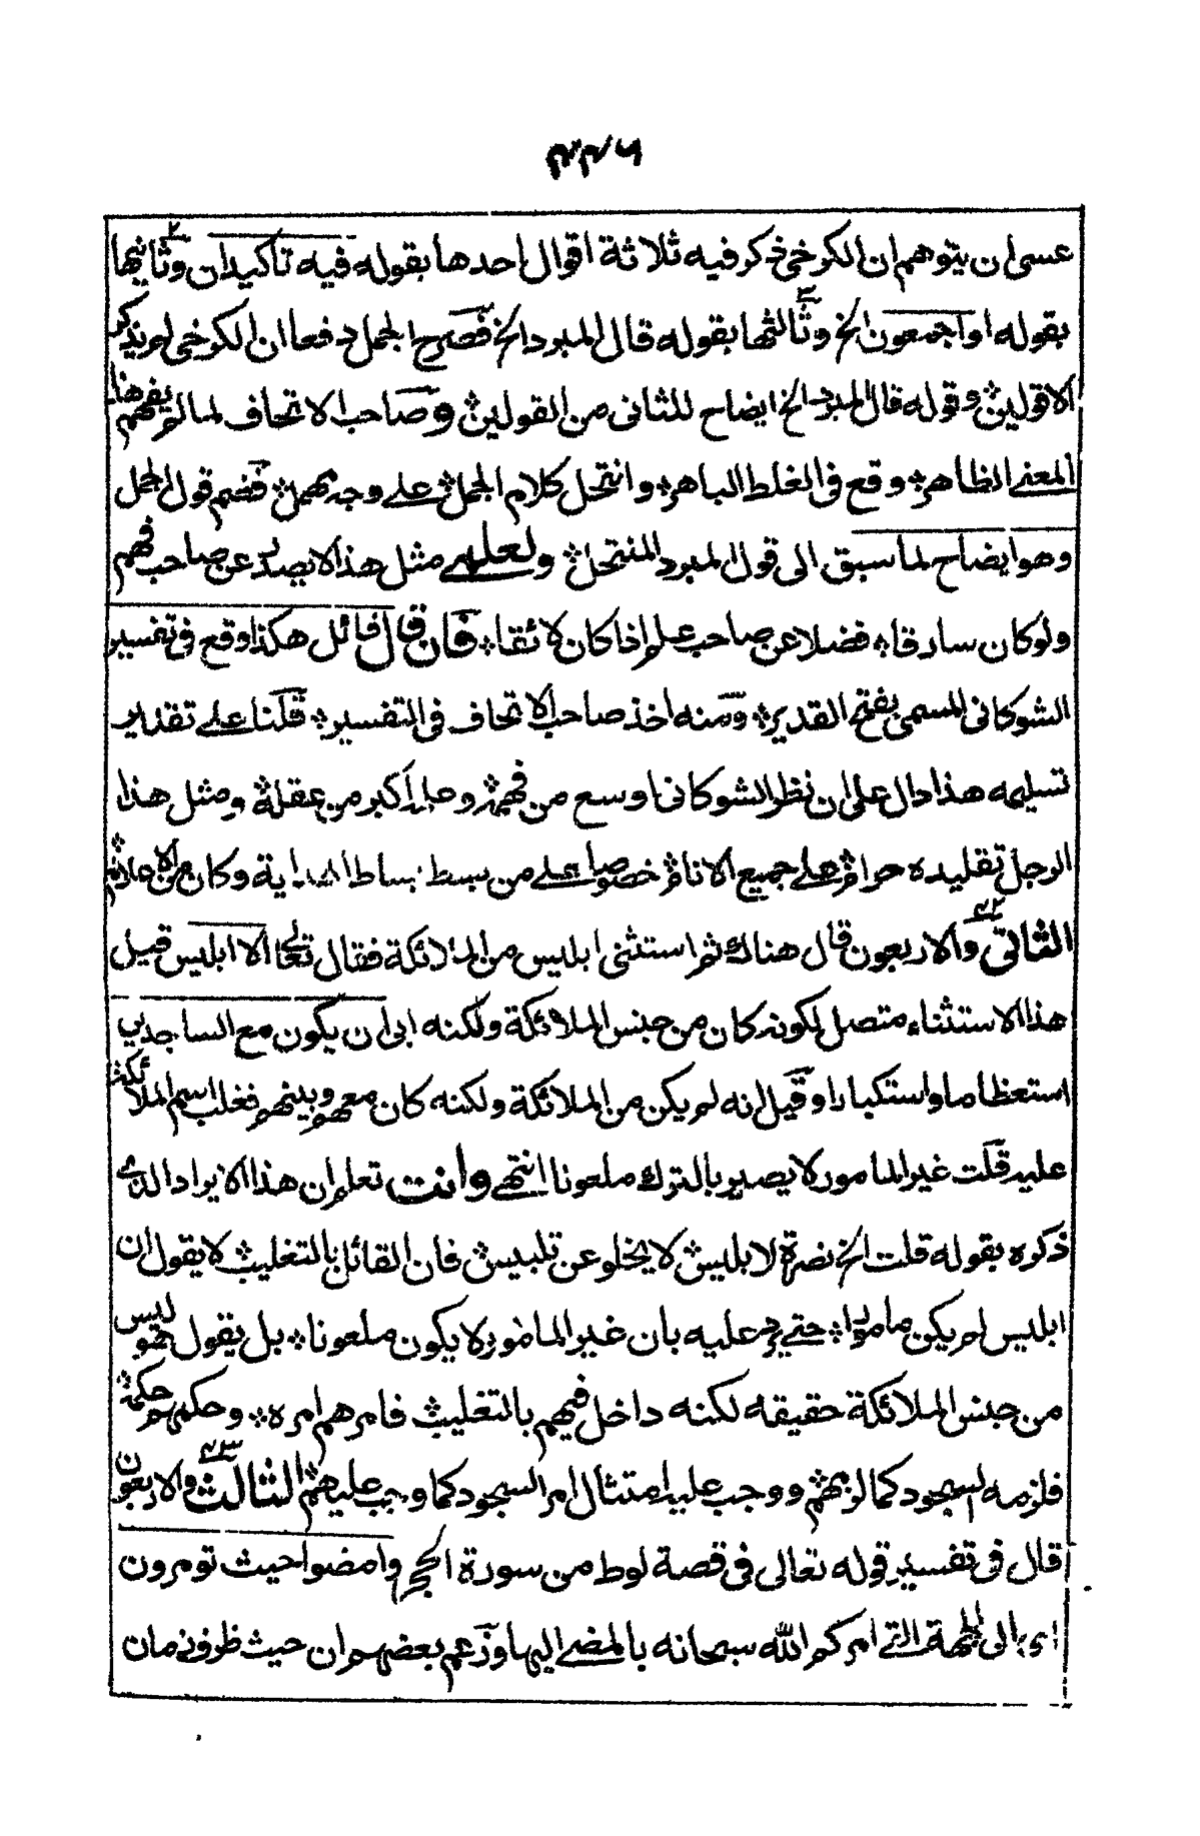 ۲۳۶
عسى ان يتوهم ان الكرخي ذكر فيه ثلاثة اقوال احدها بقوله فيه تاكيدان وثانيها
بقوله او اجمعون الخ وثالثها بقوله قال المبرد الخ فصرح الجمل دفعا ان الكرخي لم يذكر
الا قولين وقوله قال المبرد الخ ايضاح للثاني من القولين وصاحب الاتحاف لما لم يفهم هذا
المعنى الظاهر وقع في الغلط الباهر وانتحل كلام الجمل على وجه مهمل فضم قول الجمل
وهو ايضاح لما سبق الى قول المبرد المنتحل ولعلي مثل هذا لا يصدر عن صاحب فهم
ولو كان سارقا فضلا عن صاحب علم اذا كان لائقا فان قال قائل هكذا وقع في تفسير
الشوكاني المسمى بفتح القدير ومنه اخذ صاحب الاتحاف في التفسير قلنا على تقدير
تسليمه هذا دال على ان نظر الشوكاني اوسع من فهمه وعلمه اكبر من عقله ومثل هذا
الرجل تقليده حرام على جميع الانام خصوصا على من بسط بساط الهداية وكان من الاعلام
الثاني والاربعون قال هناك ثم استثنى ابليس من الملائكة فقال تعالى الا ابليس قيل
هذا الاستثناء متصل لكونه كان من جنس الملائكة ولكنه ابى ان يكون مع الساجدين
استعظاما واستكبارا وقيل انه لم يكن من الملائكة ولكنه كان معهم وبينهم فغلب اسم الملائكة
عليه قلت غير المامور لا يصير بالترك ملعونا انتهى وانت تعلم ان هذا الايراد الذي
ذكره بقوله قلت الخ نصرة لابليس لا يخلو عن تلبيس فان القائل بالتغليب لا يقول ان
ابليس لم يكن مامورا حتى يرد عليه بان غير المامور لا يكون ملعونا بل يقول هو ليس
من جنس الملائكة حقيقه لكنه داخل فيهم بالتغليب فامرهم امره وحكمهم حكمه
فلزمه السجود كما لزمهم ووجب عليه امتثال امر السجود كما وجب عليهم الثالث والاربعون
قال في تفسير قوله تعالى في قصة لوط من سورة الحجر وامضوا حيث تومرون
اي الى الجهة التي امركم الله سبحانه بالمضي اليها وزعم بعضهم ان حيث ظرف زمان